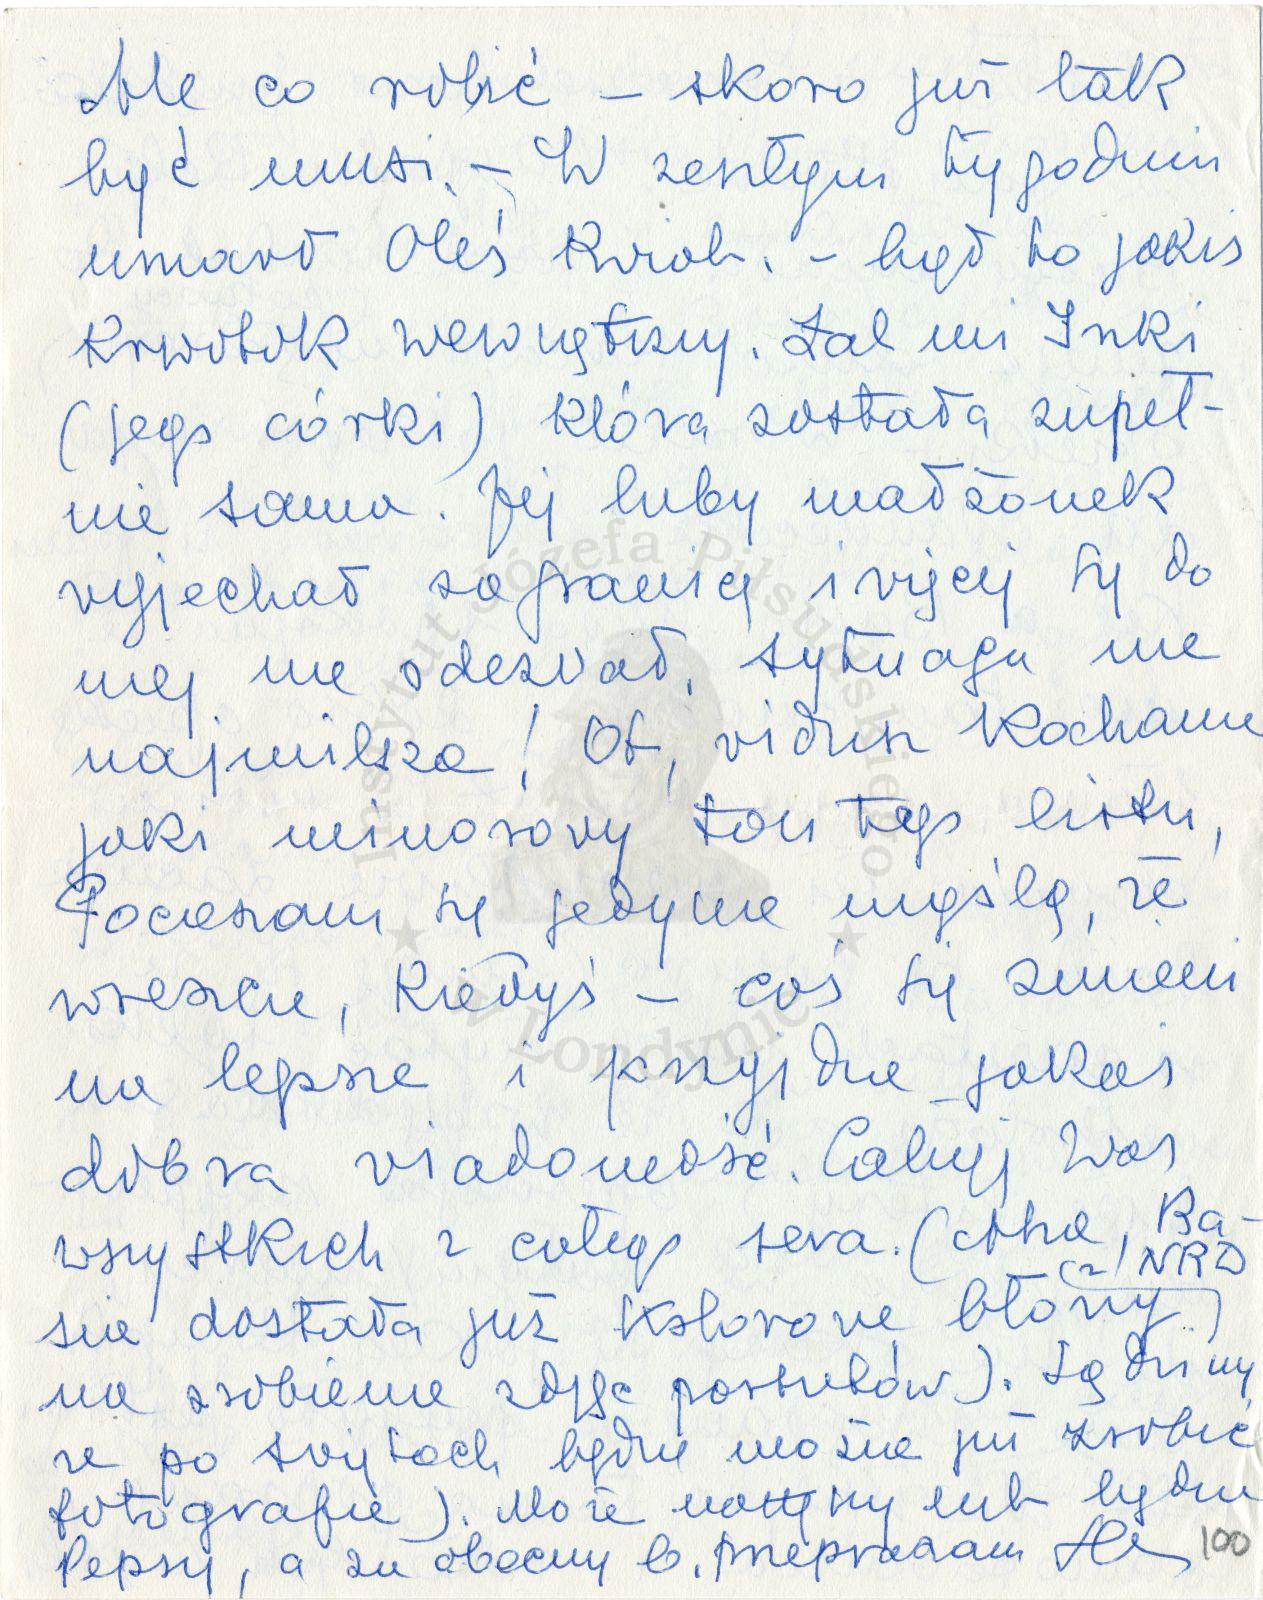 Ale co robić – skoro już tak
być musi. – W zeszłym tygodniu
umarł Oleś – był to jakiś
krwotok wewnętrzny. Żal mi Inki
(jego córki) która została zupeł-
nie sama. Jej luby małżonek
wyjechał zagranicę i więcej się do
niej nie odezwał, sytuacja nie
najmilsza! Ot, widzisz kochanie
jaki minorowy ton tego listu,
Pocieszam się jedynie myślą, że
wreszcie, kiedyś – coś się zmieni
na lepsze i przyjdzie jakaś
dobra wiadomość. Całuję Was
wszystkich z całego serca. (Aha, Ba-
(z NRD)
sia dostała już kolorowe błony
na zrobienie zdjęć posążków). Sądzimy
że po świętach będzie można już zrobić
fotografie). Może następny list będzie
lepszy, a za obecny b. przepraszam
100
Instytut Józefa Piłsudskiego
★ w Londynie ★